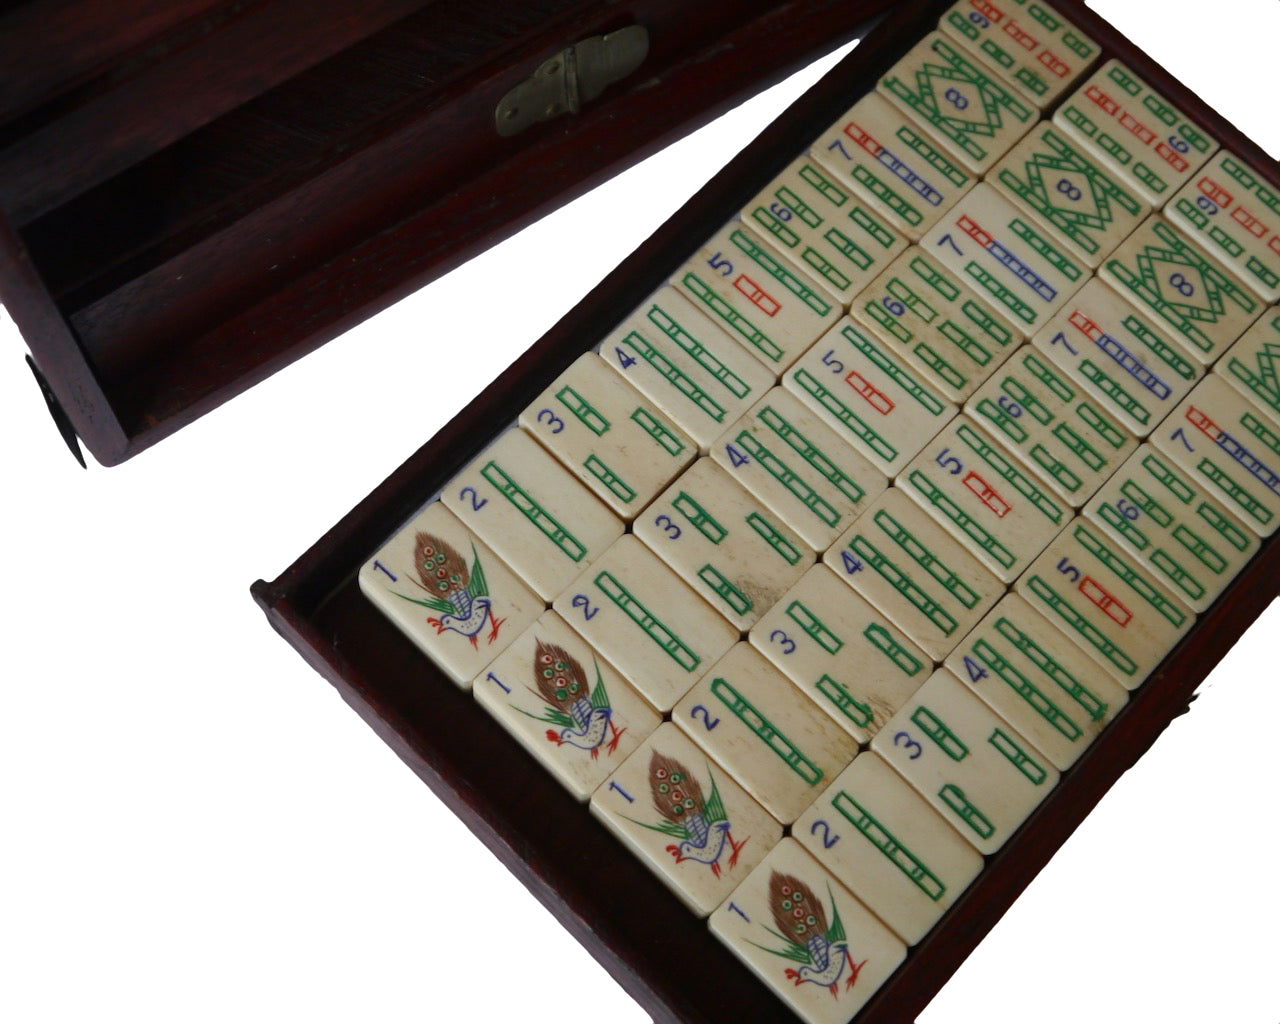 1 2 3 4 5 6 7 8 9
1 2 3 4 5 6 7 8 9
1 2 3 4 5 6 7 8 9
1 2 3 4 5 6 7